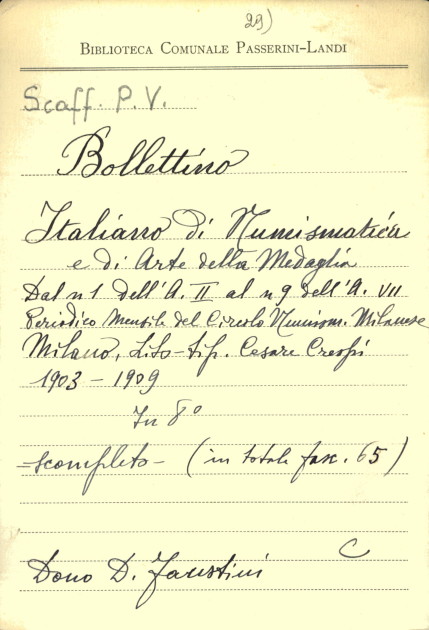 29)
BIBLIOTECA COMUNALE PASSERINI-LANDI
Scaff. P. V.
Bollettino
Italiano di Numismatica
e di Arte della Medaglia
Dal n 1 dell'A. II al n 9 dell'A. VII
Periodico Mensile del Circolo Numism. Milanese
Milano, Lito-tip. Cesare Crespi
1903 - 1909
In 8°
-scompleto- (in totale fasc. 65)
C
Dono D. Faustini